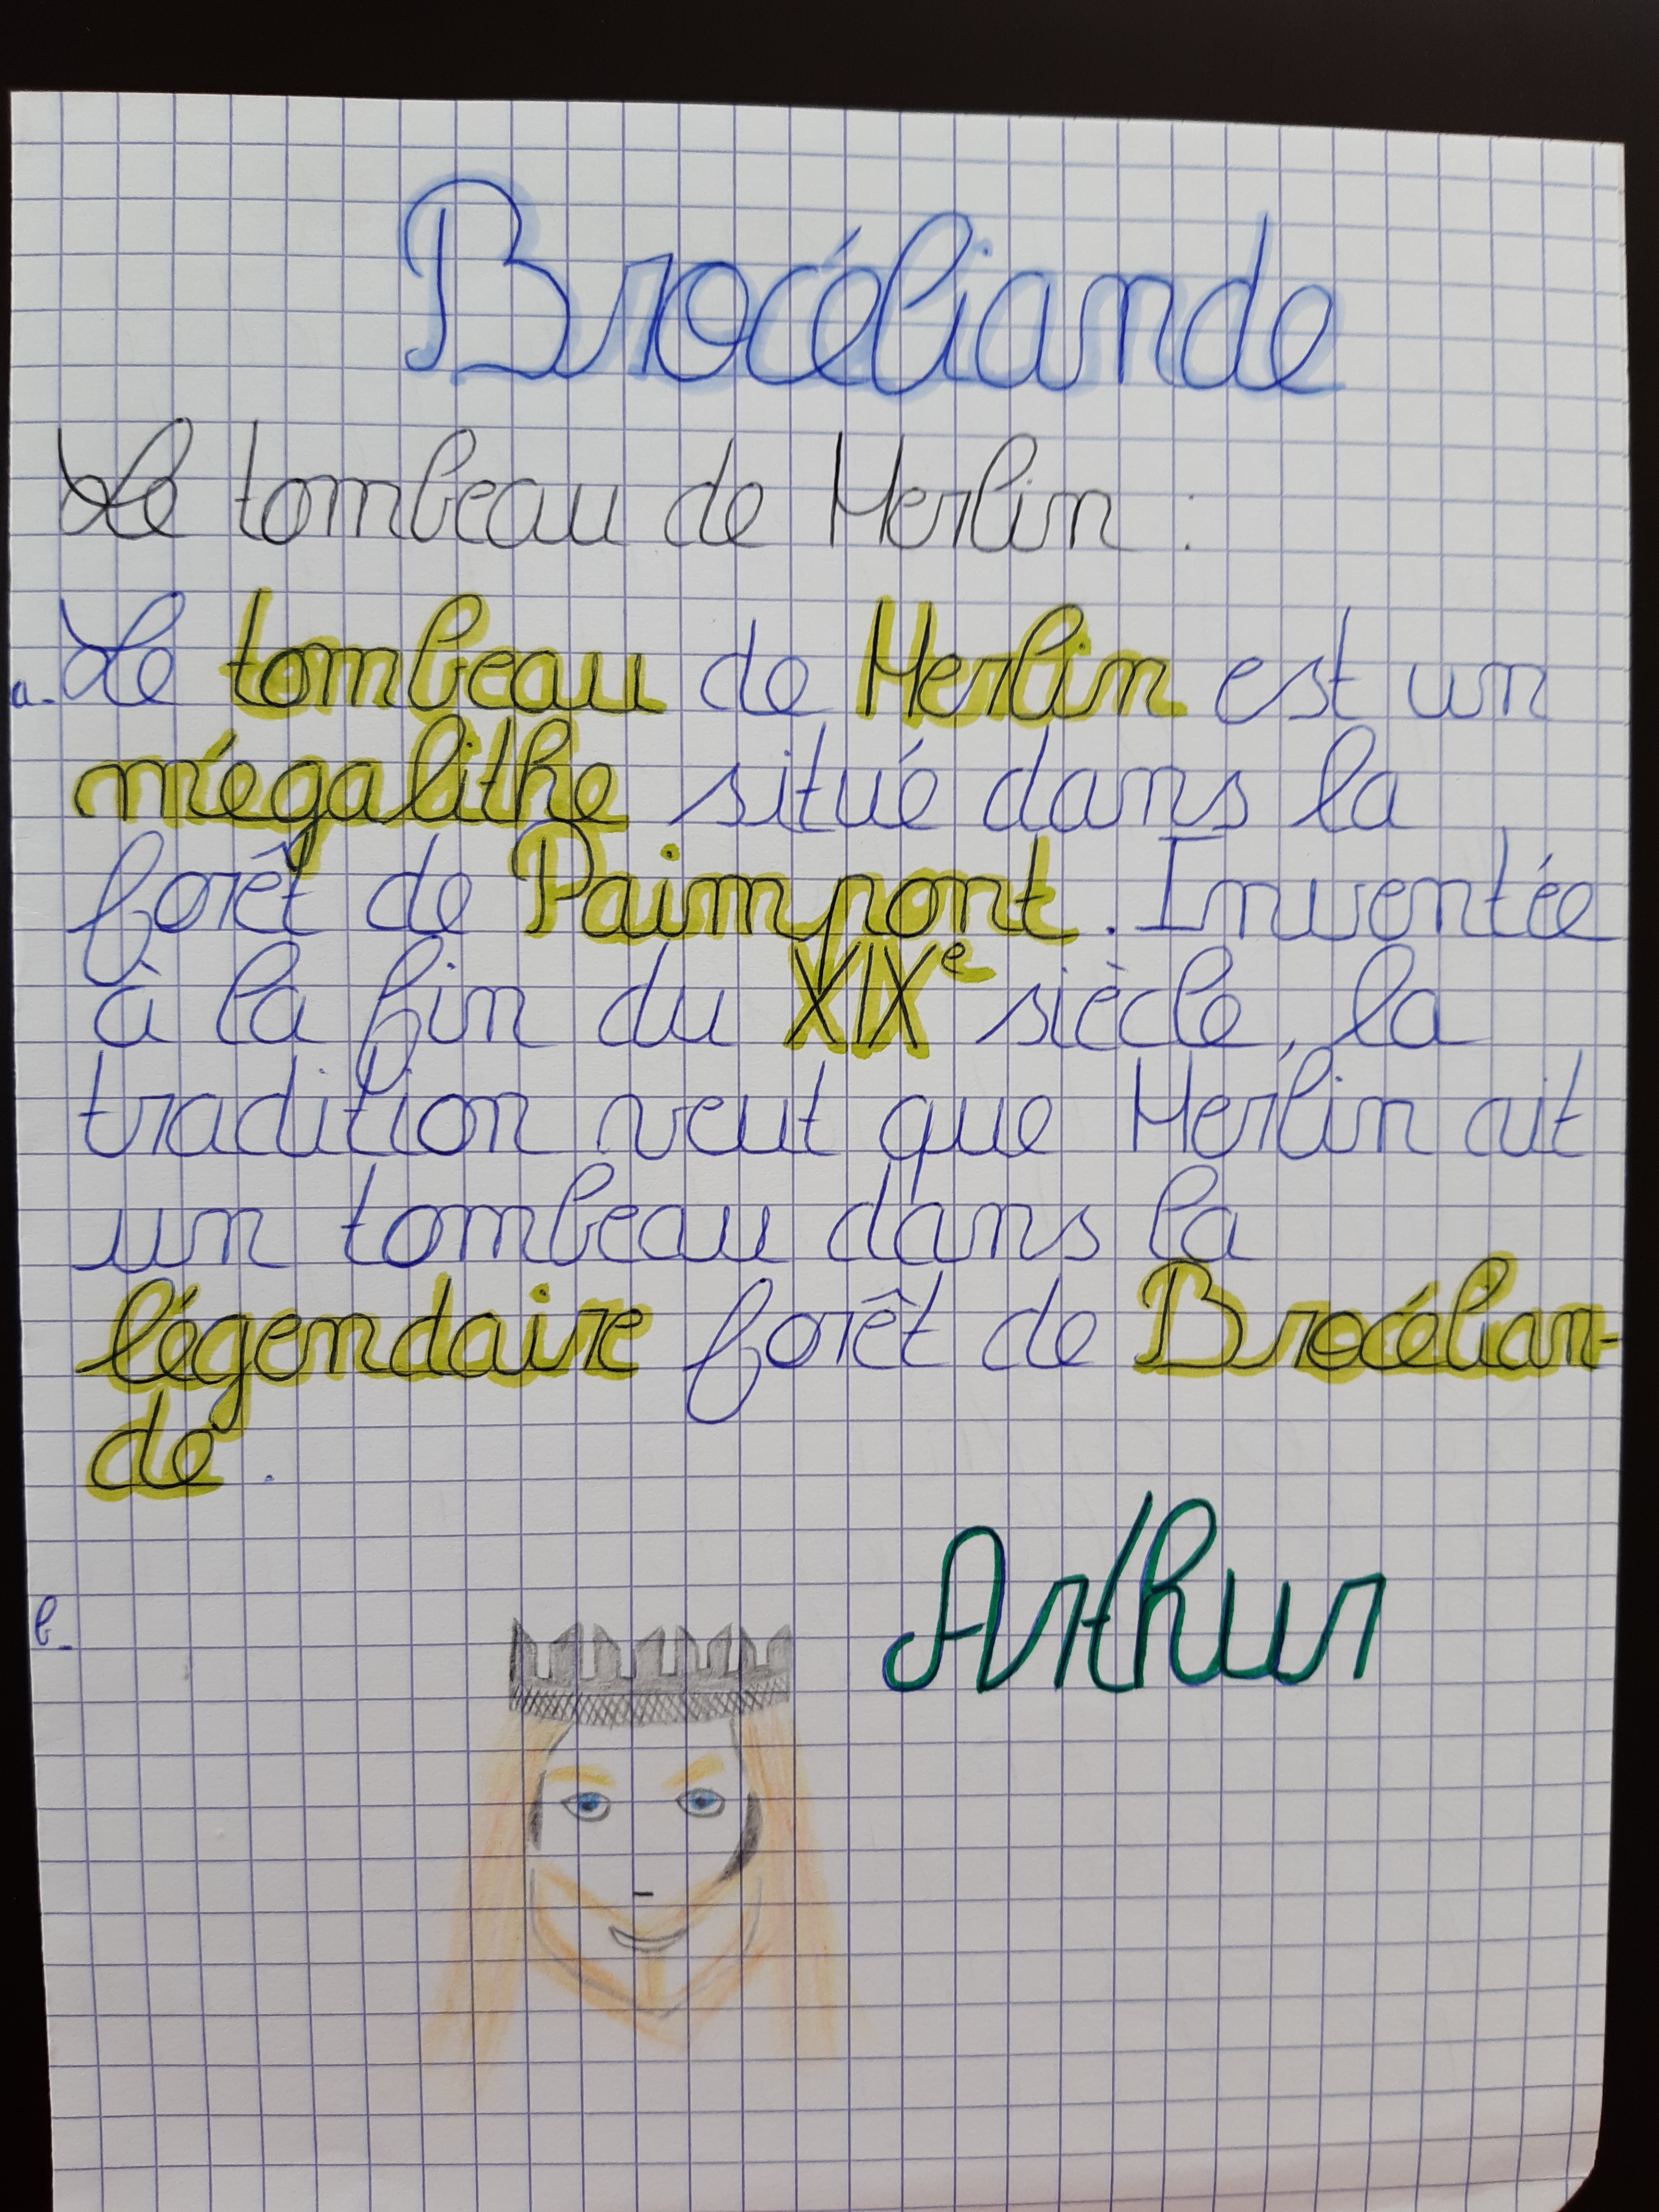 Brocéliande
Le tombeau de Merlin :
a. Le tombeau de Merlin est un
mégalithe situé dans la
forêt de Paimpont. Inventée
à la fin du XIXe siècle, la
tradition veut que Merlin ait
un tombeau dans la
légendaire forêt de Brocélian-
de.
Arthur
b.